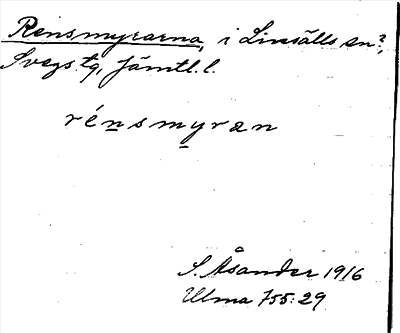 Rensmyrarna, i Linsälls sn?,
Svegs tg, Jämtl. l.
rénsmyran
S. Åsander 1916
Ulma 755:29